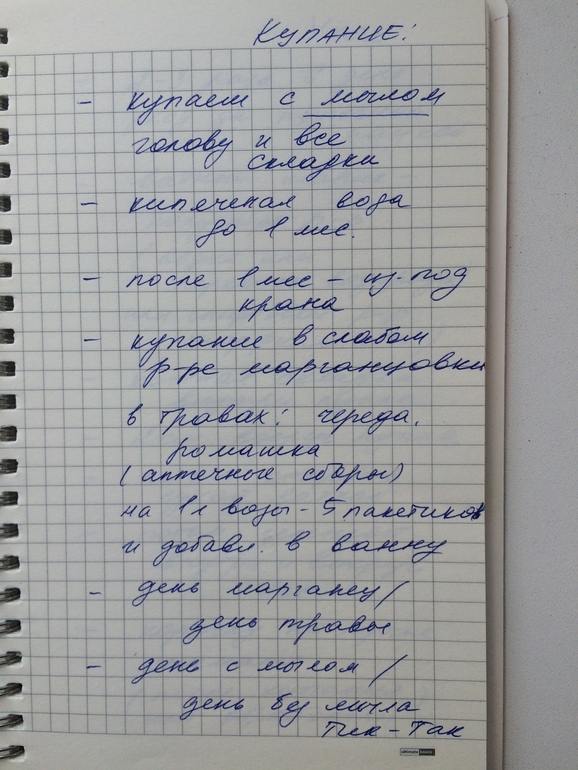 Купание:
- купаем с мылом
голову и все
складки
- кипяченая вода
до 1 мес.
- после 1 мес - из-под
крана
- купание в слабом
р-ре марганцовки
в травах: череда,
ромашка
(аптечные сборы)
на 1 л воды - 5 пакетиков
и добавл. в ванну
- день марганец/
день травы
- день с мылом/
день без мыла
Тик-Так